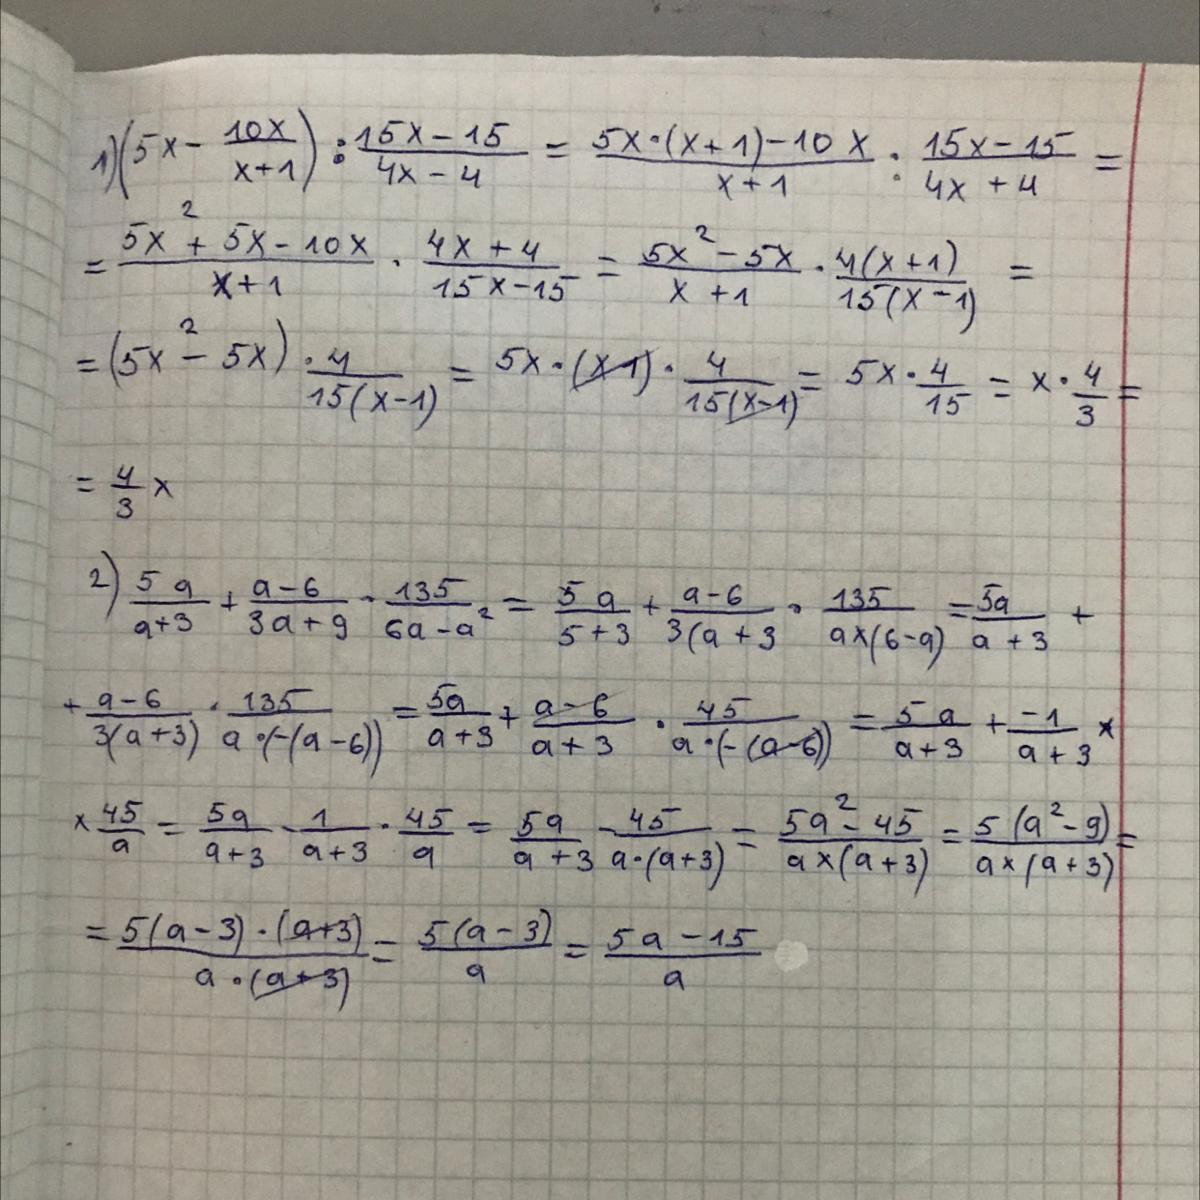 1) (5x - 10x/(x+1)) : (15x-15)/(4x-4) = (5x·(x+1)-10x)/(x+1) : (15x-15)/(4x+4) =
= (5x²+5x-10x)/(x+1) · (4x+4)/(15x-15) = (5x²-5x)/(x+1) · 4(x+1)/15(x-1) =
= (5x²-5x) · 4/15(x-1) = 5x·(x-1) · 4/15(x-1) = 5x · 4/15 = x · 4/3 =
= 4/3 x
2) 5a/(a+3) + (a-6)/(3a+9) · 135/(6a-a²) = 5a/(5+3) + (a-6)/3(a+3 · 135/a×(6-a) = 5a/(a+3) +
+ (a-6)/3(a+3) · 135/a·(-(a-6)) = 5a/(a+3) + (a-6)/(a+3) · 45/a·(-(a-6)) = 5a/(a+3) + -1/(a+3) ×
× 45/a = 5a/(a+3) - 1/(a+3) · 45/a = 5a/(a+3) - 45/a·(a+3) = (5a²-45)/a×(a+3) = 5(a²-9)/a×(a+3) =
= 5(a-3)·(a+3)/a·(a+3) = 5(a-3)/a = (5a-15)/a